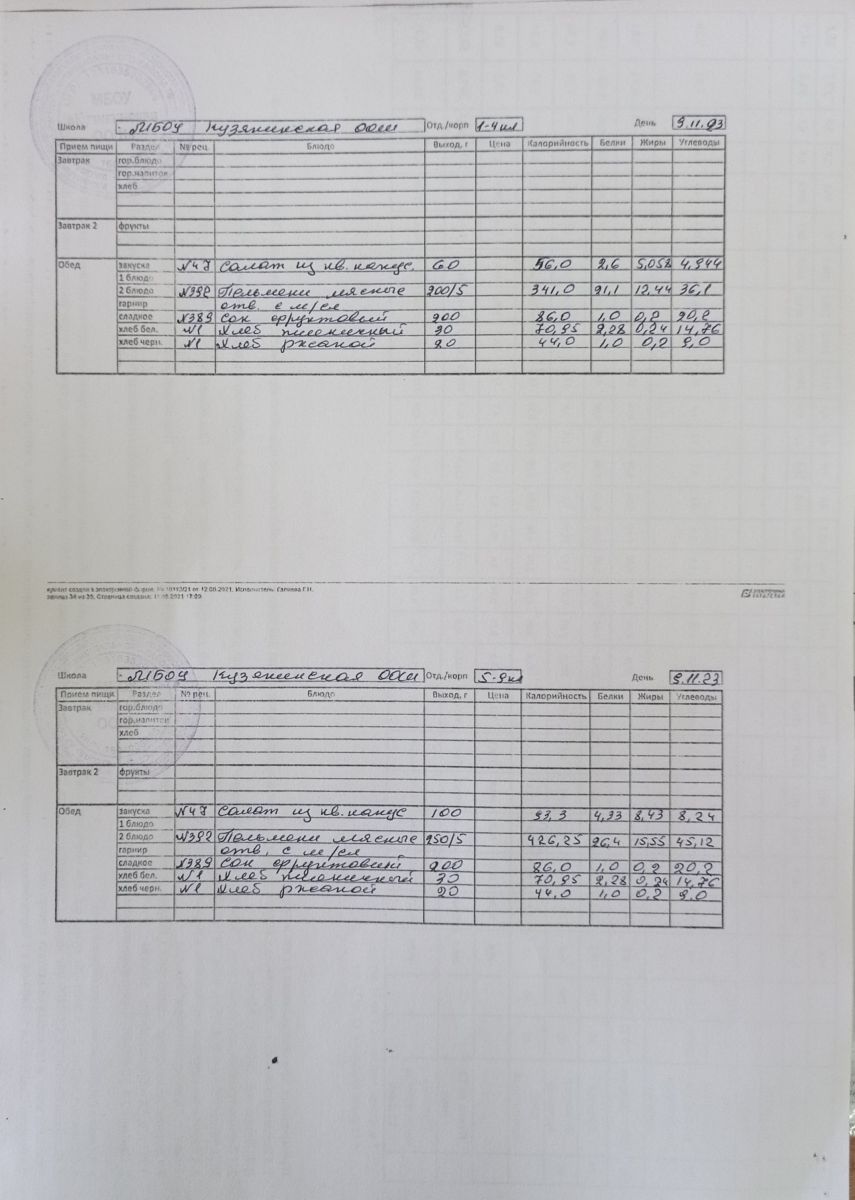 МБОУ
Школа - МБОУ Кузякинская ООШ Отд./корп 1-4 кл День 9.11.23
Прием пищи Раздел № рец. Блюдо Выход, г Цена Калорийность Белки Жиры Углеводы
Завтрак гор.блюдо
гор.напиток
хлеб
Завтрак 2 фрукты
Обед закуска №47 Салат из кв. капус. 60 56,0 2,6 5,058 4,944
1 блюдо
2 блюдо №392 Пельмени мясные 200/5 341,0 21,1 12,44 36,1
гарнир отв. с м/сл
сладкое №389 Сок фруктовый 200 86,0 1,0 0,2 20,2
хлеб бел. №1 Хлеб пшеничный 30 70,95 2,28 0,24 14,76
хлеб черн. №1 Хлеб ржаной 20 44,0 1,0 0,2 9,0
от 12.08.2021. Исполнитель: Галиева Г.Н.
Страница создана: 2021
Школа - МБОУ Кузякинская ООШ Отд./корп 5-9 кл День 9.11.23
Прием пищи Раздел № рец. Блюдо Выход, г Цена Калорийность Белки Жиры Углеводы
Завтрак гор.блюдо
гор.напиток
хлеб
Завтрак 2 фрукты
Обед закуска №47 Салат из кв. капус 100 93,3 4,33 8,43 8,24
1 блюдо
2 блюдо №392 Пельмени мясные 250/5 426,25 26,4 15,55 45,12
гарнир отв. с м/сл
сладкое №389 Сок фруктовый 200 86,0 1,0 0,2 20,2
хлеб бел. №1 Хлеб пшеничный 30 70,95 2,28 0,24 14,76
хлеб черн. №1 Хлеб ржаной 20 44,0 1,0 0,2 9,0